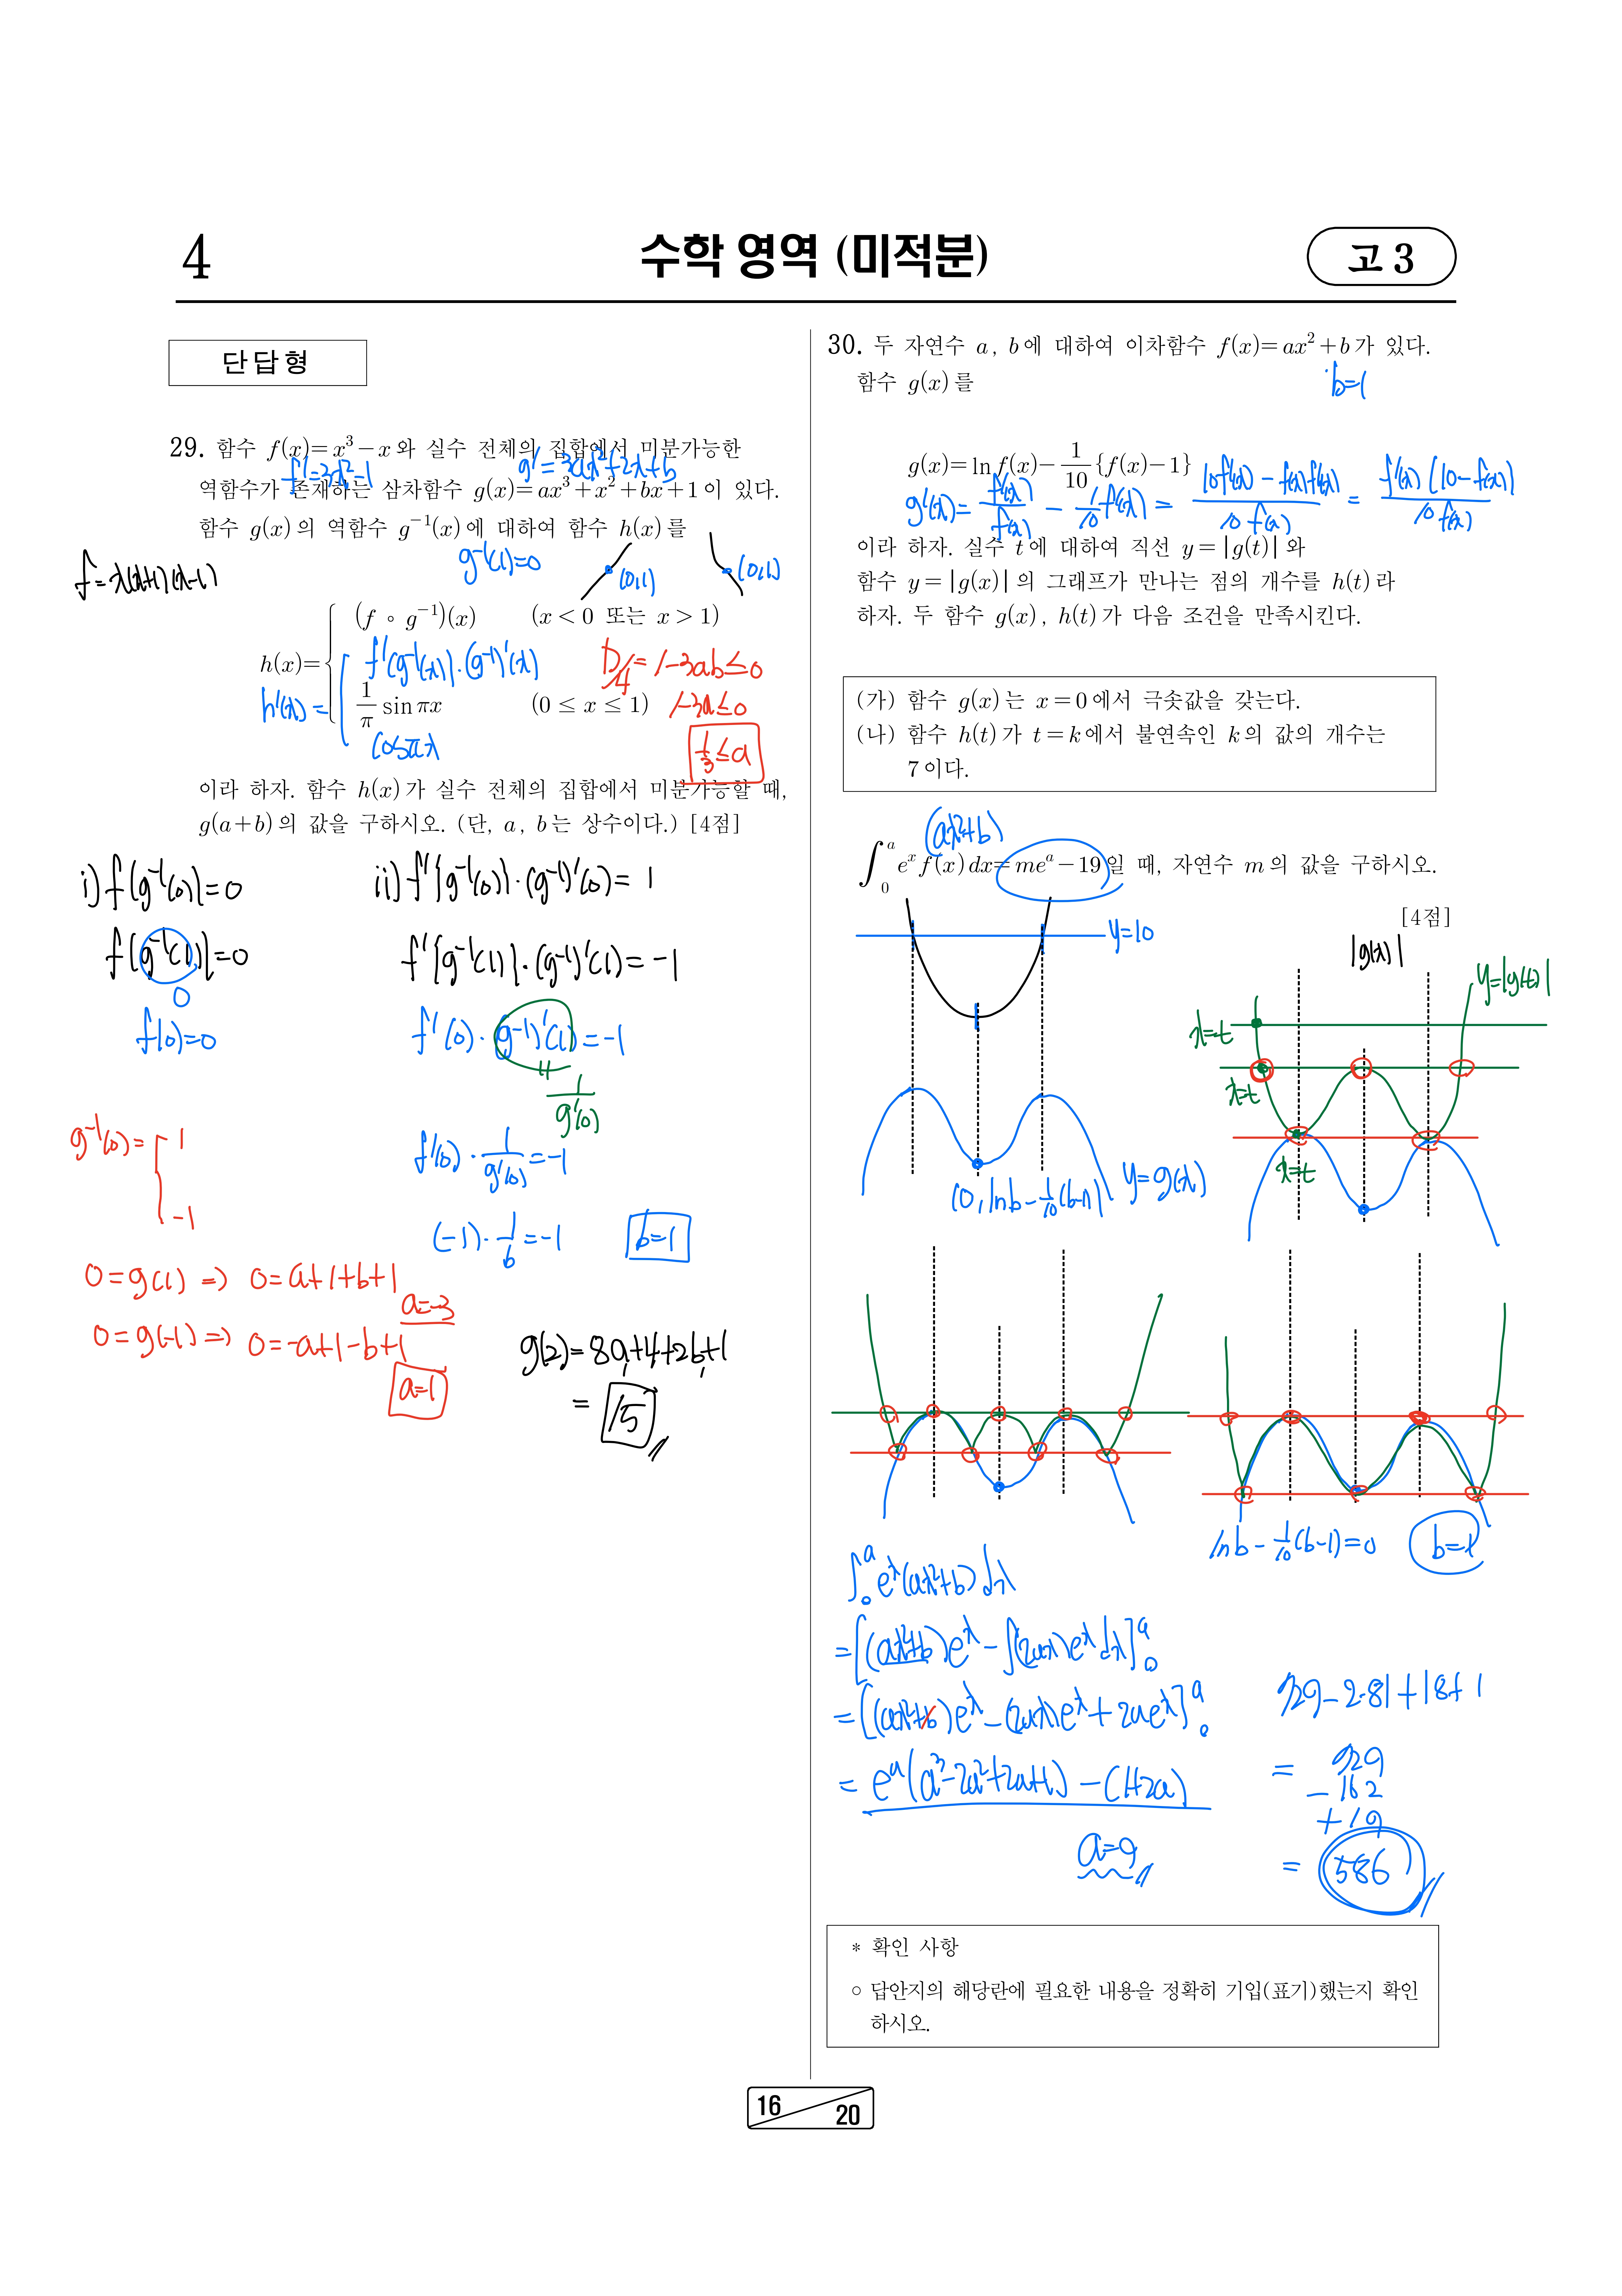 4
수학 영역 (미적분)
고 3
단답형
29. 함수 f(x)=x³-x와 실수 전체의 집합에서 미분가능한
f'=3x²-1
g'=3ax²+2x+b
역함수가 존재하는 삼차함수 g(x)=ax³+x²+bx+1이 있다.
함수 g(x)의 역함수 g⁻¹(x)에 대하여 함수 h(x)를
f=x(x+1)(x-1)
g⁻¹(1)=0
(0,1)
(0,1)
h(x)=
(f∘g⁻¹)(x) (x<0 또는 x>1)
f'(g⁻¹(x))·(g⁻¹)'(x)
h'(x)=
1/π sin πx (0≤x≤1)
cos πx
D/4=1-3ab≤0
1-3a≤0
1/3≤a
이라 하자. 함수 h(x)가 실수 전체의 집합에서 미분가능할 때,
g(a+b)의 값을 구하시오. (단, a, b는 상수이다.) [4점]
i) f(g⁻¹(0))=0
f(g⁻¹(1))=0
0
f(0)=0
g⁻¹(0)= 1
-1
0=g(1) => 0=a+1+b+1
a=-3
0=g(-1) => 0=-a+1-b+1
a=1
ii) f'{g⁻¹(0)}·(g⁻¹)'(0)=1
f'{g⁻¹(1)}·(g⁻¹)'(1)=-1
f'(0)·(g⁻¹)'(1)=-1
1/g'(0)
f'(0)·1/g'(0)=-1
(-1)·1/b=-1
b=1
g(2)=8a+4+2b+1
=15
30. 두 자연수 a, b에 대하여 이차함수 f(x)=ax²+b가 있다.
b=1
함수 g(x)를
g(x)=ln f(x)-1/10{f(x)-1}
g'(x)=f'(x)/f(x)-1/10 f'(x)=(10f'(x)-f(x)f'(x))/10f(x)=f'(x)(10-f(x))/10f(x)
이라 하자. 실수 t에 대하여 직선 y=|g(t)|와
함수 y=|g(x)|의 그래프가 만나는 점의 개수를 h(t)라
하자. 두 함수 g(x), h(t)가 다음 조건을 만족시킨다.
(가) 함수 g(x)는 x=0에서 극솟값을 갖는다.
(나) 함수 h(t)가 t=k에서 불연속인 k의 값의 개수는
7이다.
(ax²+b)
∫₀ᵃ eˣf(x)dx=meᵃ-19일 때, 자연수 m의 값을 구하시오.
[4점]
y=10
(0, ln b-1/10(b-1))
y=g(x)
|g(x)|
y=|g(t)|
x=t
x=t
x=t
ln b-1/10(b-1)=0
b=1
∫₀ᵃ eˣ(ax²+b)dx
=[(ax²+b)eˣ-∫(2ax)eˣdx]₀ᵃ
=[(ax²+b)eˣ-(2ax)eˣ+2aeˣ]₀ᵃ
=eᵃ(a³-2a²+2a+1)-(1+2a)
a=9
729-2·81+18+1
= 729
-162
+19
= 586
* 확인 사항
○ 답안지의 해당란에 필요한 내용을 정확히 기입(표기)했는지 확인
하시오.
16
20